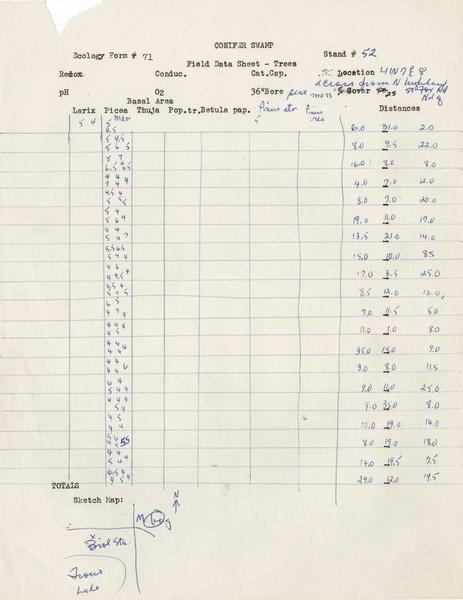 CONIFER SWAMP
Ecology Form # 71 Stand # 52
Field Data Sheet - Trees
Redox Conduc. Cat.Cap. Location 41N 7E 8
across from N Highland
pH O2 36"Bore peat moss % Cover 25 St For Rd
Hdq
Basal Area
Larix Picea Thuja Pop.tr. Betula pap. Pinus str Pinus res Distances
5 4 5 mar 5
4.5 6.0 31.0 2.0
5 4.5
5 6 5 8.0 9.5 22.0
5 7
6.5 4.5 16.0 8.0 8.0
4 4 4
4.0 7.0 12.0
8.0 7.0 20.0
5 4
5 6 4 19.0 11.0 17.0
4 4
5 4 7 13.5 21.0 14.0
5.5 6.5
5 4 4 15.0 10.0 85
4 6
17.0 3.5 25.0
8.5 12.0 16.0
6 5
4 7.0 11.5 5.0
4 4 4
11.0 1.0 8.0
4 4
4 4 35.0 15.0 9.0
4 4
4 4 6 3.0 8.0 11.5
6 4
5 4 4 9.0 11.0 25.0
4 4 4
5 4 9.0 35.0 8.0
4 5 6
4 4 10.0 19.0 14.0
55 8.0 19.0 18.0
4 4
14.0 19.5 7.5
6.5 4
4 5 4 29.0 12.0 19.5
TOTALS
Sketch Map:
N
M Bog
Biol Sta.
Trout
Lake